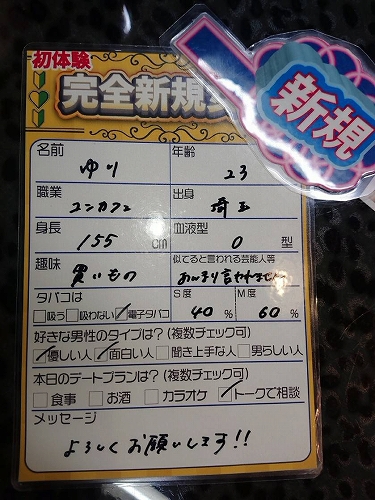 初体験
完全新規
新規
名前 ゆり 年齢 23
職業 コンカフェ 出身 埼玉
身長 155 cm 血液型 O 型
趣味 買いもの 似てると言われる芸能人等 あんまり言われません
タバコは S度 M度
□吸う □吸わない ☑電子タバコ 40 % 60 %
好きな男性のタイプは?(複数チェック可)
☑優しい人 ☑面白い人 □聞き上手な人 □男らしい人
本日のデートプランは?(複数チェック可)
□食事 □お酒 □カラオケ ☑トークで相談
メッセージ
よろしくお願いします!!